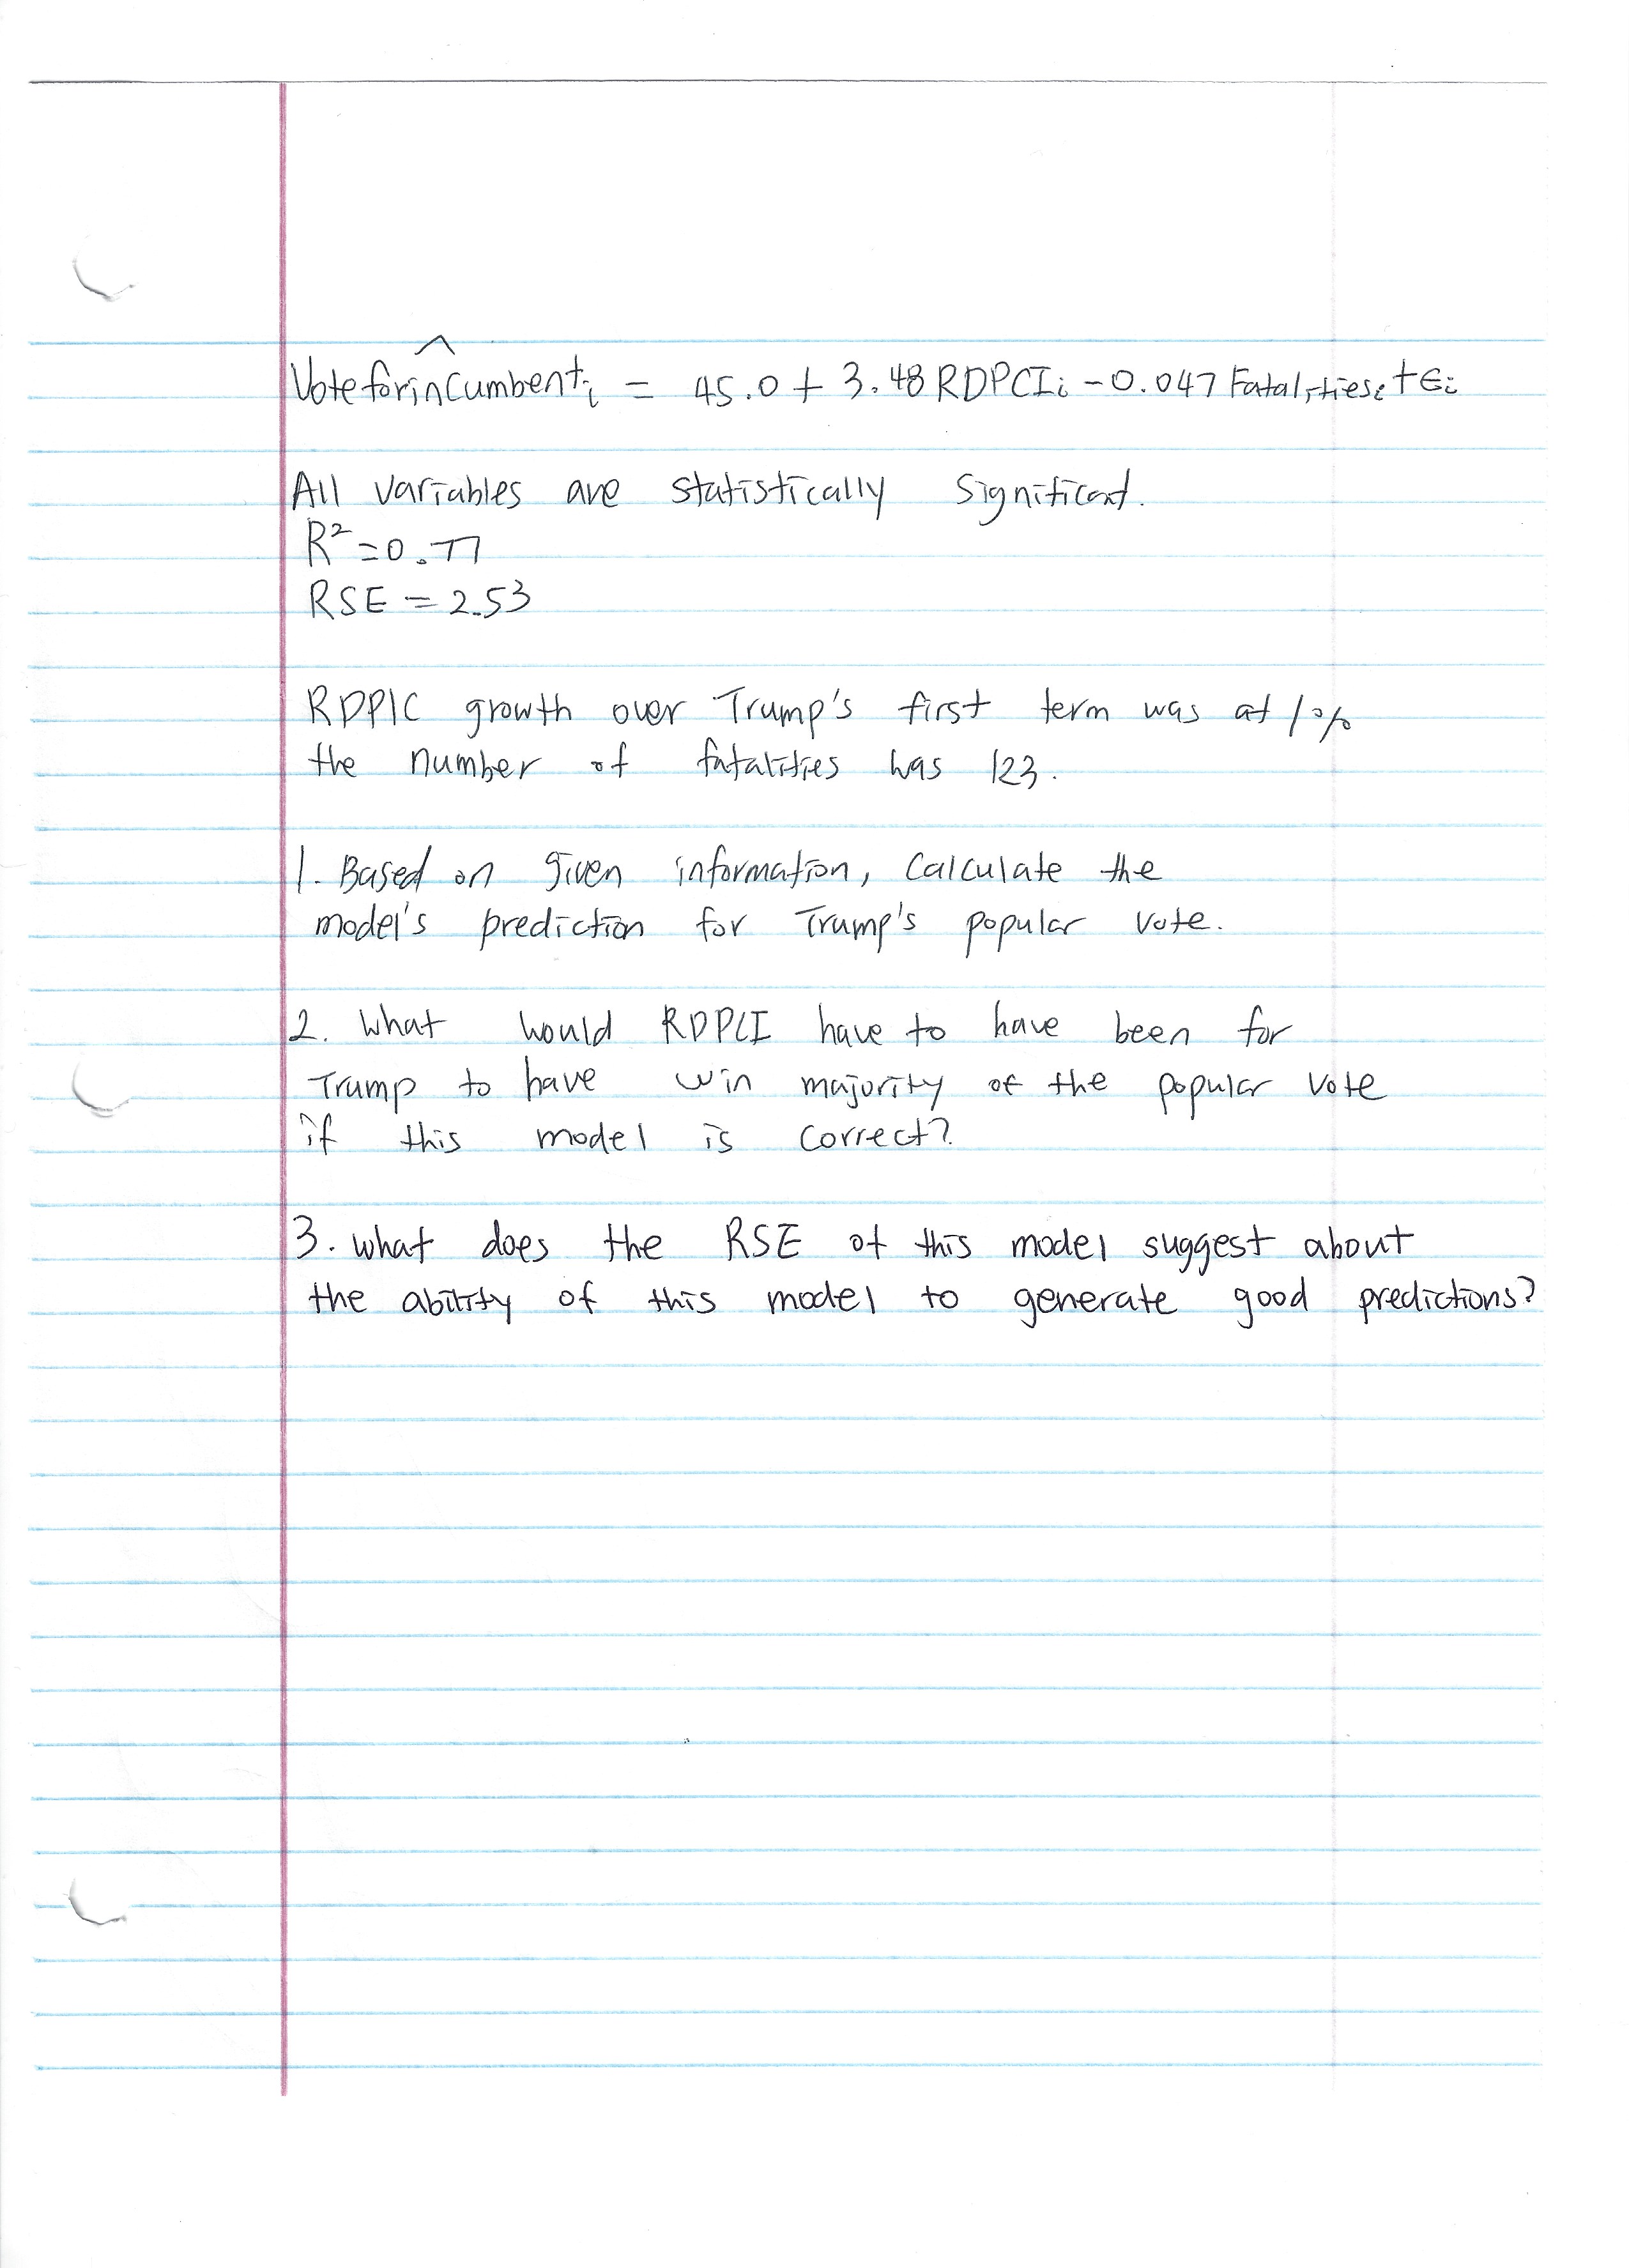 Voteforincumbentᵢ = 45.0 + 3.48 RDPCIᵢ - 0.047 Fatalitiesᵢ + ϵᵢ
All variables are statistically significant.
R² = 0.77
RSE = 2.53
RDPIC growth over Trump's first term was at 1%
the number of fatalities was 123.
1. Based on given information, calculate the
model's prediction for Trump's popular vote.
2. What would RDPCI have to have been for
Trump to have win majority of the popular vote
if this model is correct?
3. What does the RSE of this model suggest about
the ability of this model to generate good predictions?